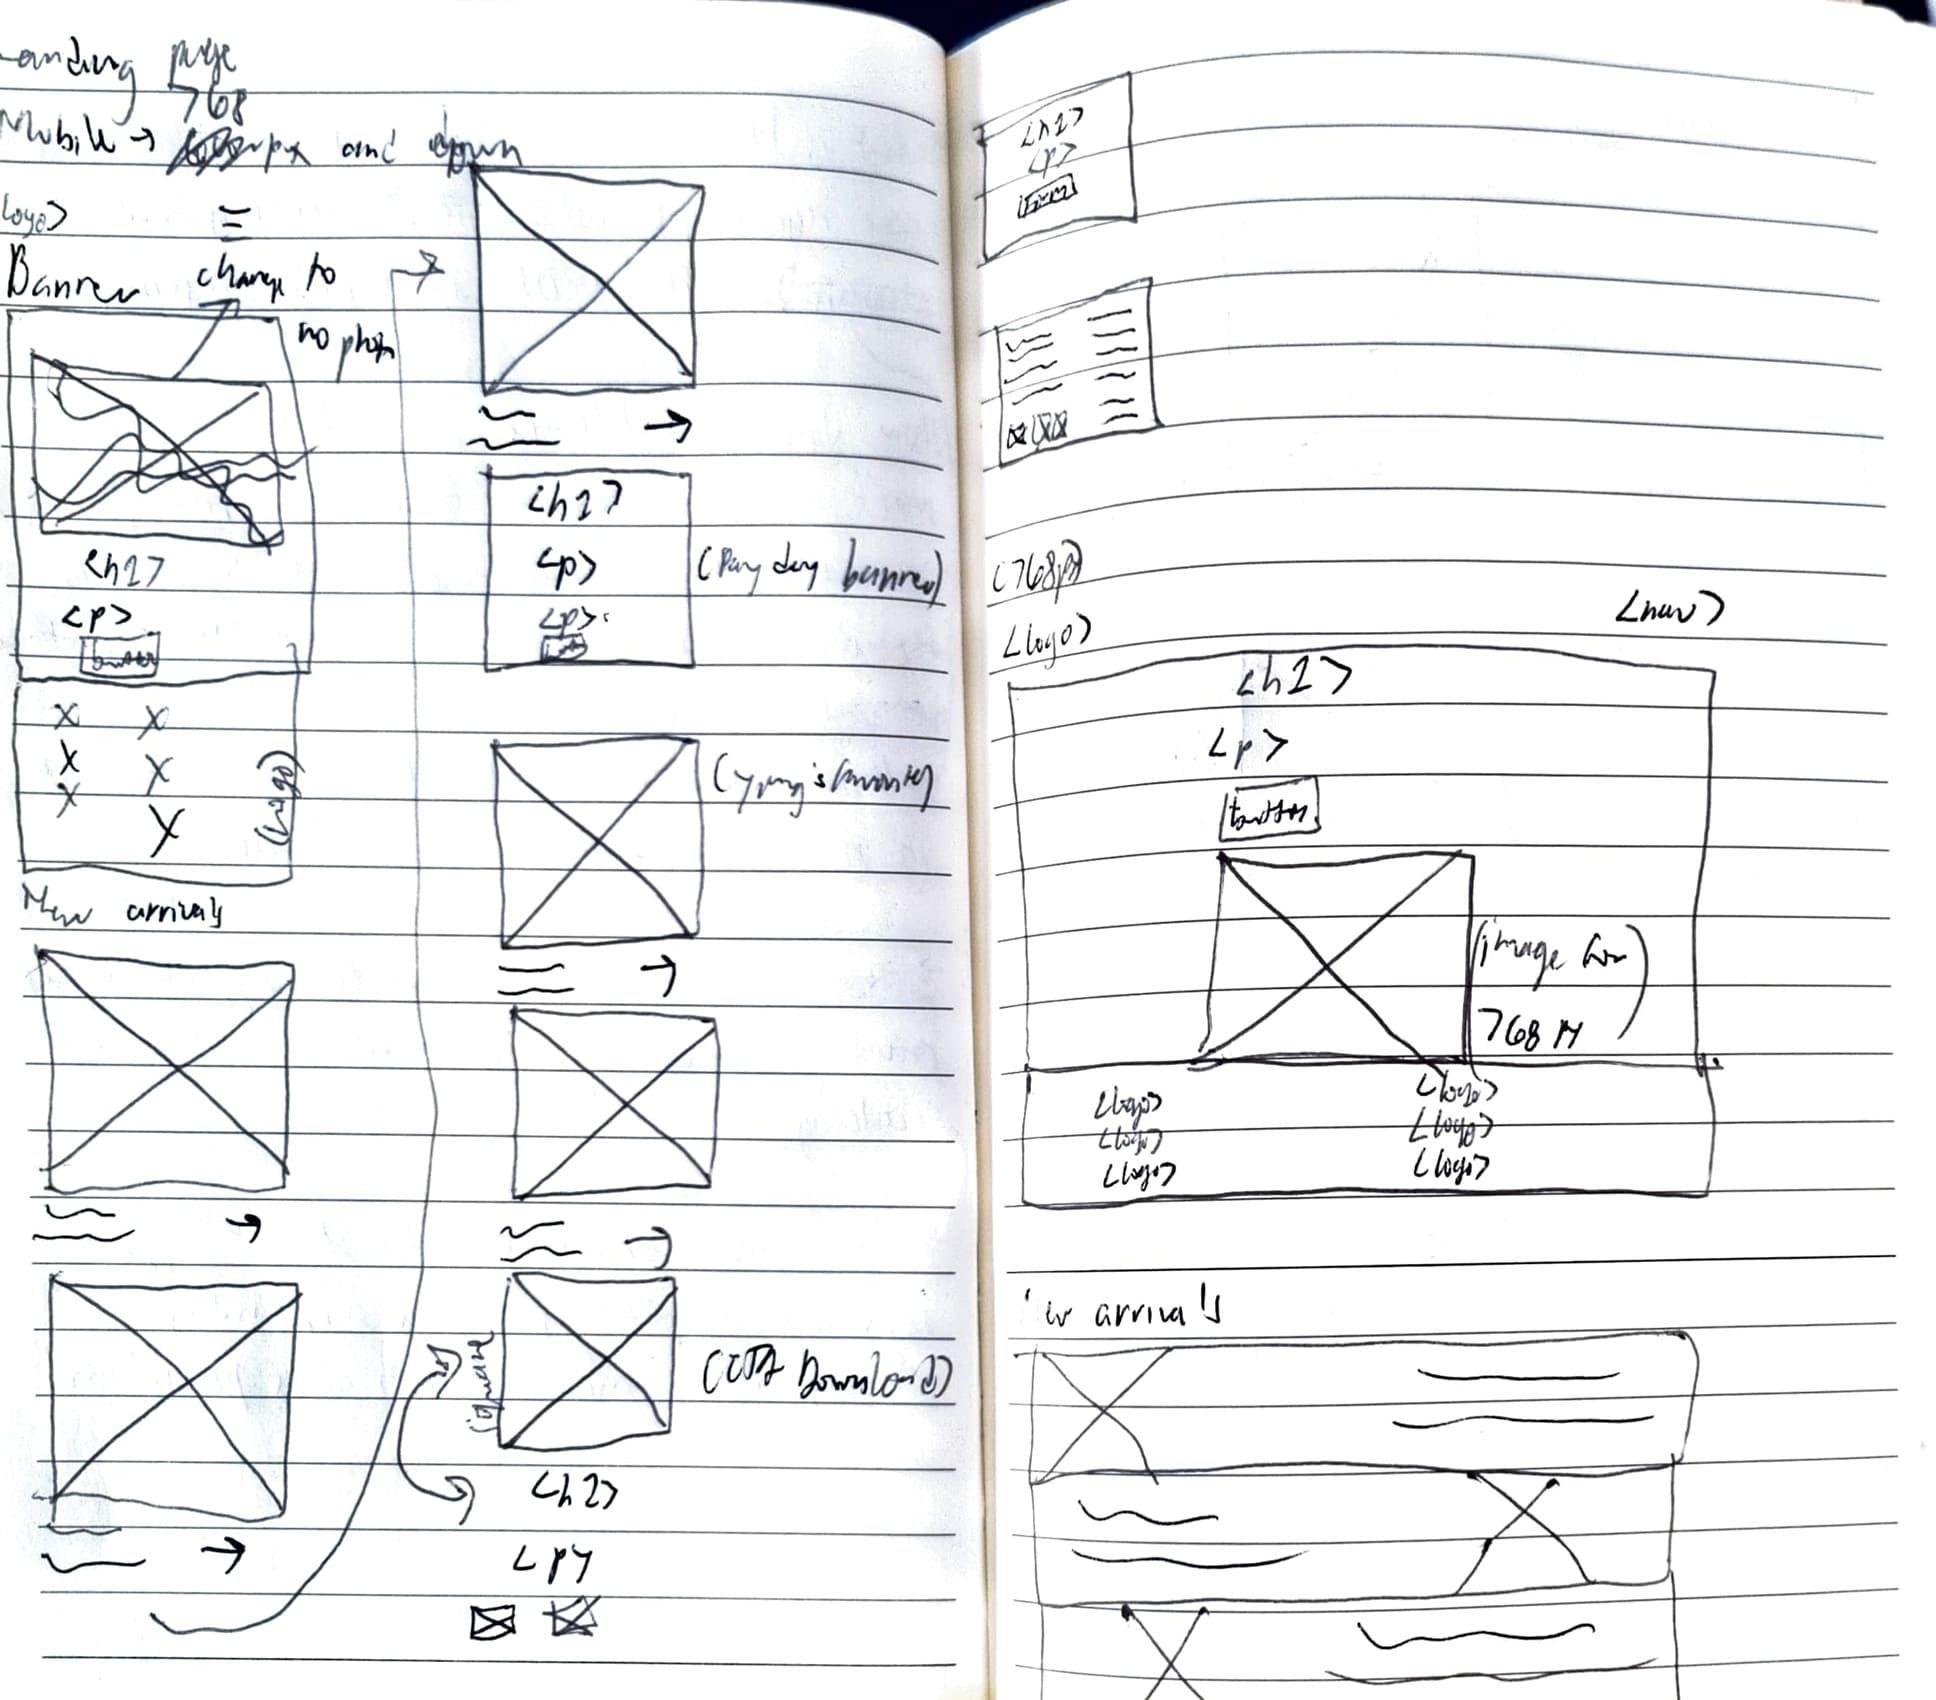 Landing page
768
Mobile → px and down
logo>
Banner
change to
no photo
<h1>
<p>
button
X X
X X
X X
(logo)
New arrivals
<h1>
<p>
<p>
(Pay day banner)
(Young's favorite)
(square)
(CTA Download)
<h2>
<p>
<h2>
<p>
(768px)
<logo>
<nav>
<h1>
<p>
button
(image for
768 px)
<logo> <logo>
<logo> <logo>
<logo> <logo>
arrivals